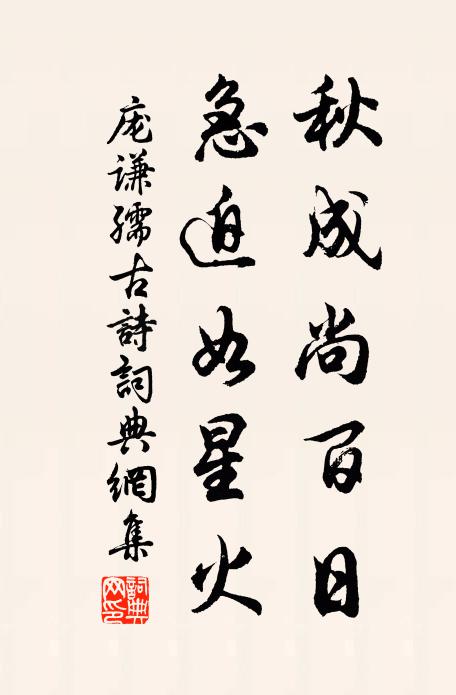 秋成尚百日
急迫如星火
庞谦孺古詩詞典網集
詞典網印